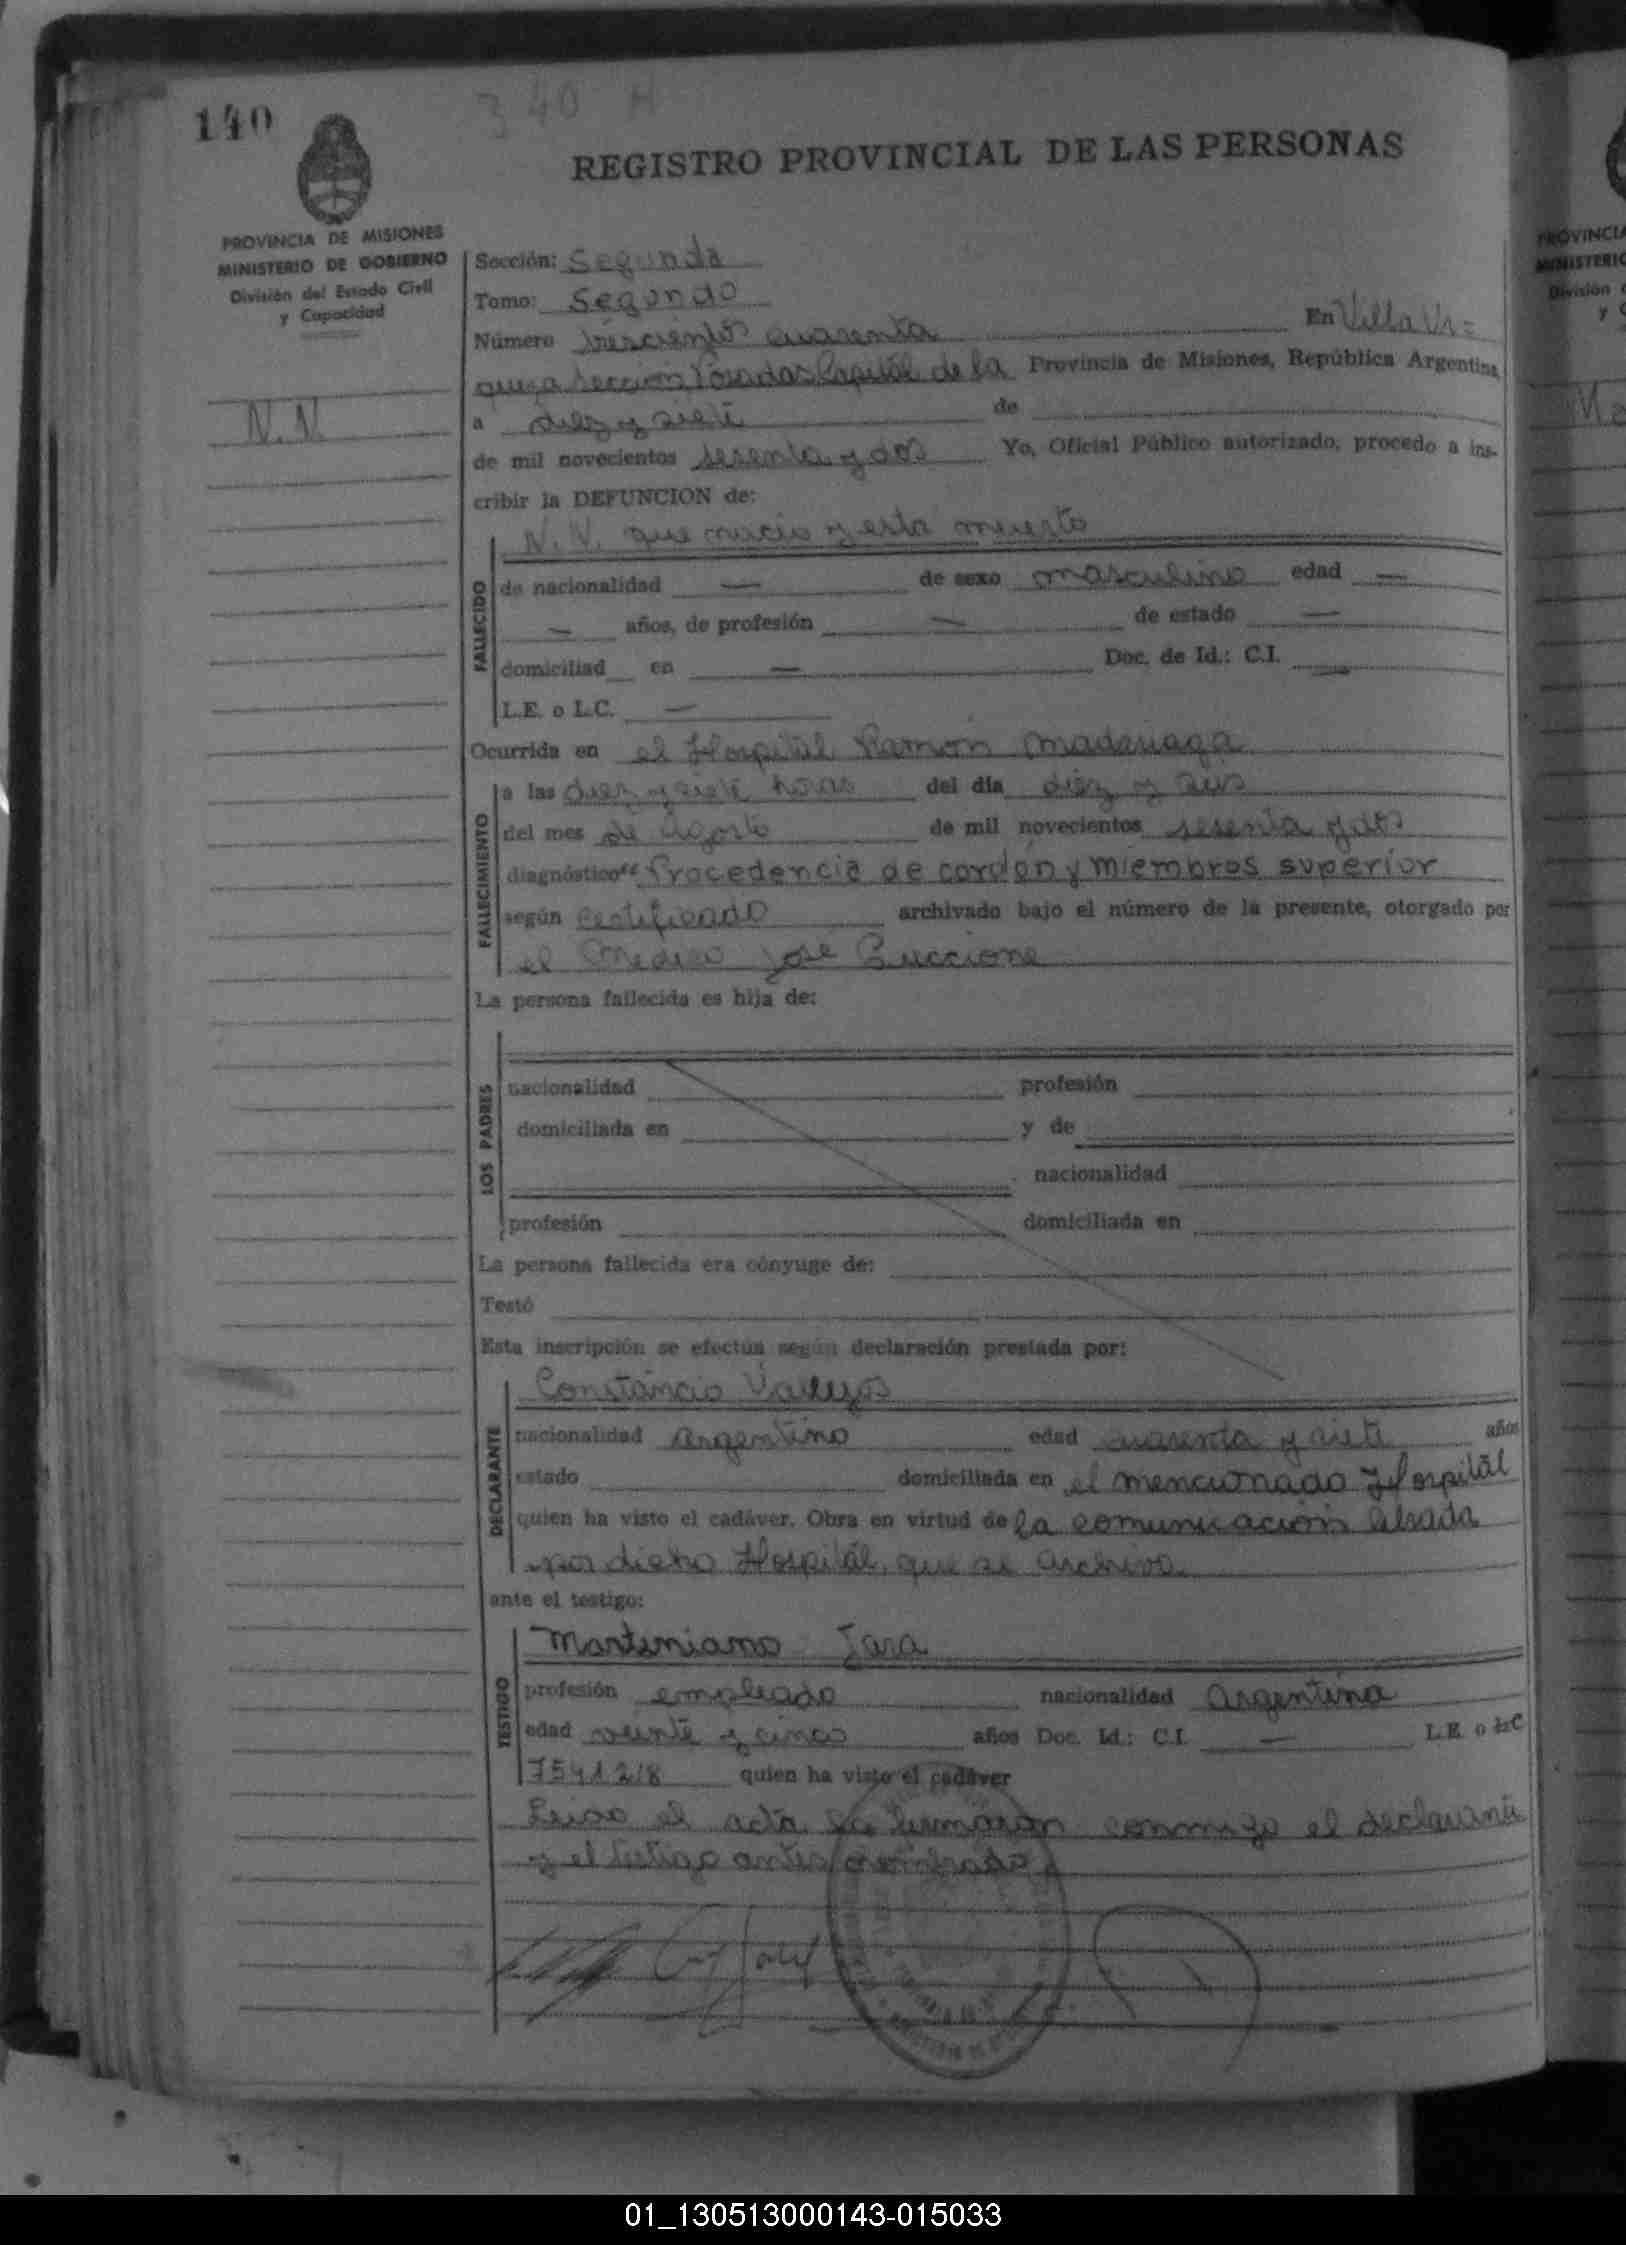 140
340 H
REGISTRO PROVINCIAL DE LAS PERSONAS
PROVINCIA DE MISIONES
MINISTERIO DE GOBIERNO
División del Estado Civil
y Capacidad
N. N.
Sección: Segunda
Tomo: Segundo
Número trescientos cuarenta En Villa Ur=
quiza Sección Posadas Capitál de la Provincia de Misiones, República Argentina,
a diez y siete de
de mil novecientos sesenta y dos Yo, Oficial Público autorizado, procedo a ins-
cribir la DEFUNCION de:
N. N. que nacio y esta muerto
FALLECIDO
de nacionalidad — de sexo masculino edad —
— años, de profesión — de estado —
domiciliad en — Doc. de Id.: C.I. —
L.E. o L.C. —
Ocurrida en el Hospital Ramón Madariaga
FALLECIMIENTO
a las diez y siete horas del día diez y seis
del mes de Agosto de mil novecientos sesenta y dos
diagnóstico "Procedencia de cordón y miembros superior
según certificado archivado bajo el número de la presente, otorgado por
el Medico José Guccione
La persona fallecida es hija de:
LOS PADRES
nacionalidad profesión
domiciliada en y de
nacionalidad
profesión domiciliada en
La persona fallecida era cónyuge de:
Testó
Esta inscripción se efectúa según declaración prestada por:
DECLARANTE
Constancio Vallejos
nacionalidad argentino edad cuarenta y siete años
estado domiciliada en el mencionado Hospitál
quien ha visto el cadáver. Obra en virtud de la comunicación librada
por dicho Hospitál, que se archiva.
ante el testigo:
TESTIGO
Marteniano Jara
profesión empleado nacionalidad Argentina
edad veinte y cinco años Doc. Id.: C.I. — L.E. o L.C
7541218 quien ha visto el cadáver
Leido el acta la firmaron conmigo el declarante
y el testigo antes nombrado
PROVINCIA
MINISTERIO
División
y C
01_130513000143-015033